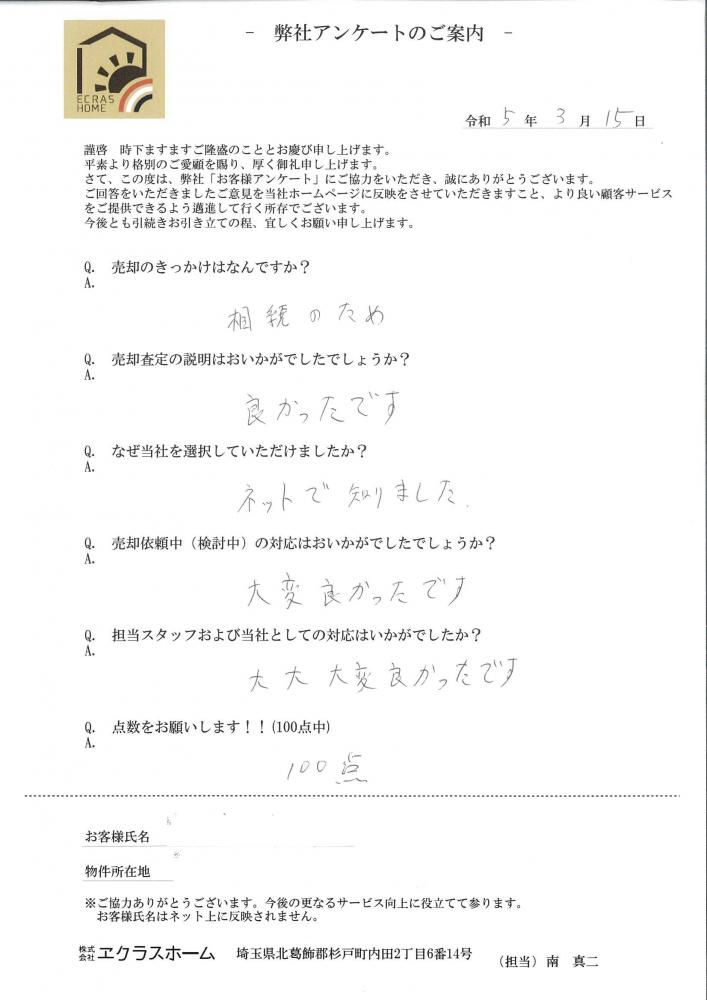 ECRAS
HOME
- 弊社アンケートのご案内 -
令和 5 年 3 月 15 日
謹啓 時下ますますご隆盛のこととお慶び申し上げます。
平素より格別のご愛顧を賜り、厚く御礼申し上げます。
さて、この度は、弊社「お客様アンケート」にご協力をいただき、誠にありがとうございます。
ご回答をいただきましたご意見を当社ホームページに反映をさせていただきますこと、より良い顧客サービス
をご提供できるよう邁進して行く所存でございます。
今後とも引続きお引き立ての程、宜しくお願い申し上げます。
Q. 売却のきっかけはなんですか？
A.
相続のため
Q. 売却査定の説明はおいかがでしたでしょうか？
A.
良かったです
Q. なぜ当社を選択していただけましたか？
A.
ネットで知りました.
Q. 売却依頼中（検討中）の対応はおいかがでしたでしょうか？
A.
大変良かったです
Q. 担当スタッフおよび当社としての対応はいかがでしたか？
A.
大大大変良かったです
Q. 点数をお願いします！！(100点中)
A.
100点
お客様氏名
物件所在地
※ご協力ありがとうございます。今後の更なるサービス向上に役立てて参ります。
お客様氏名はネット上に反映されません。
株式会社 ヱクラスホーム 埼玉県北葛飾郡杉戸町内田2丁目6番14号 （担当）南 真二